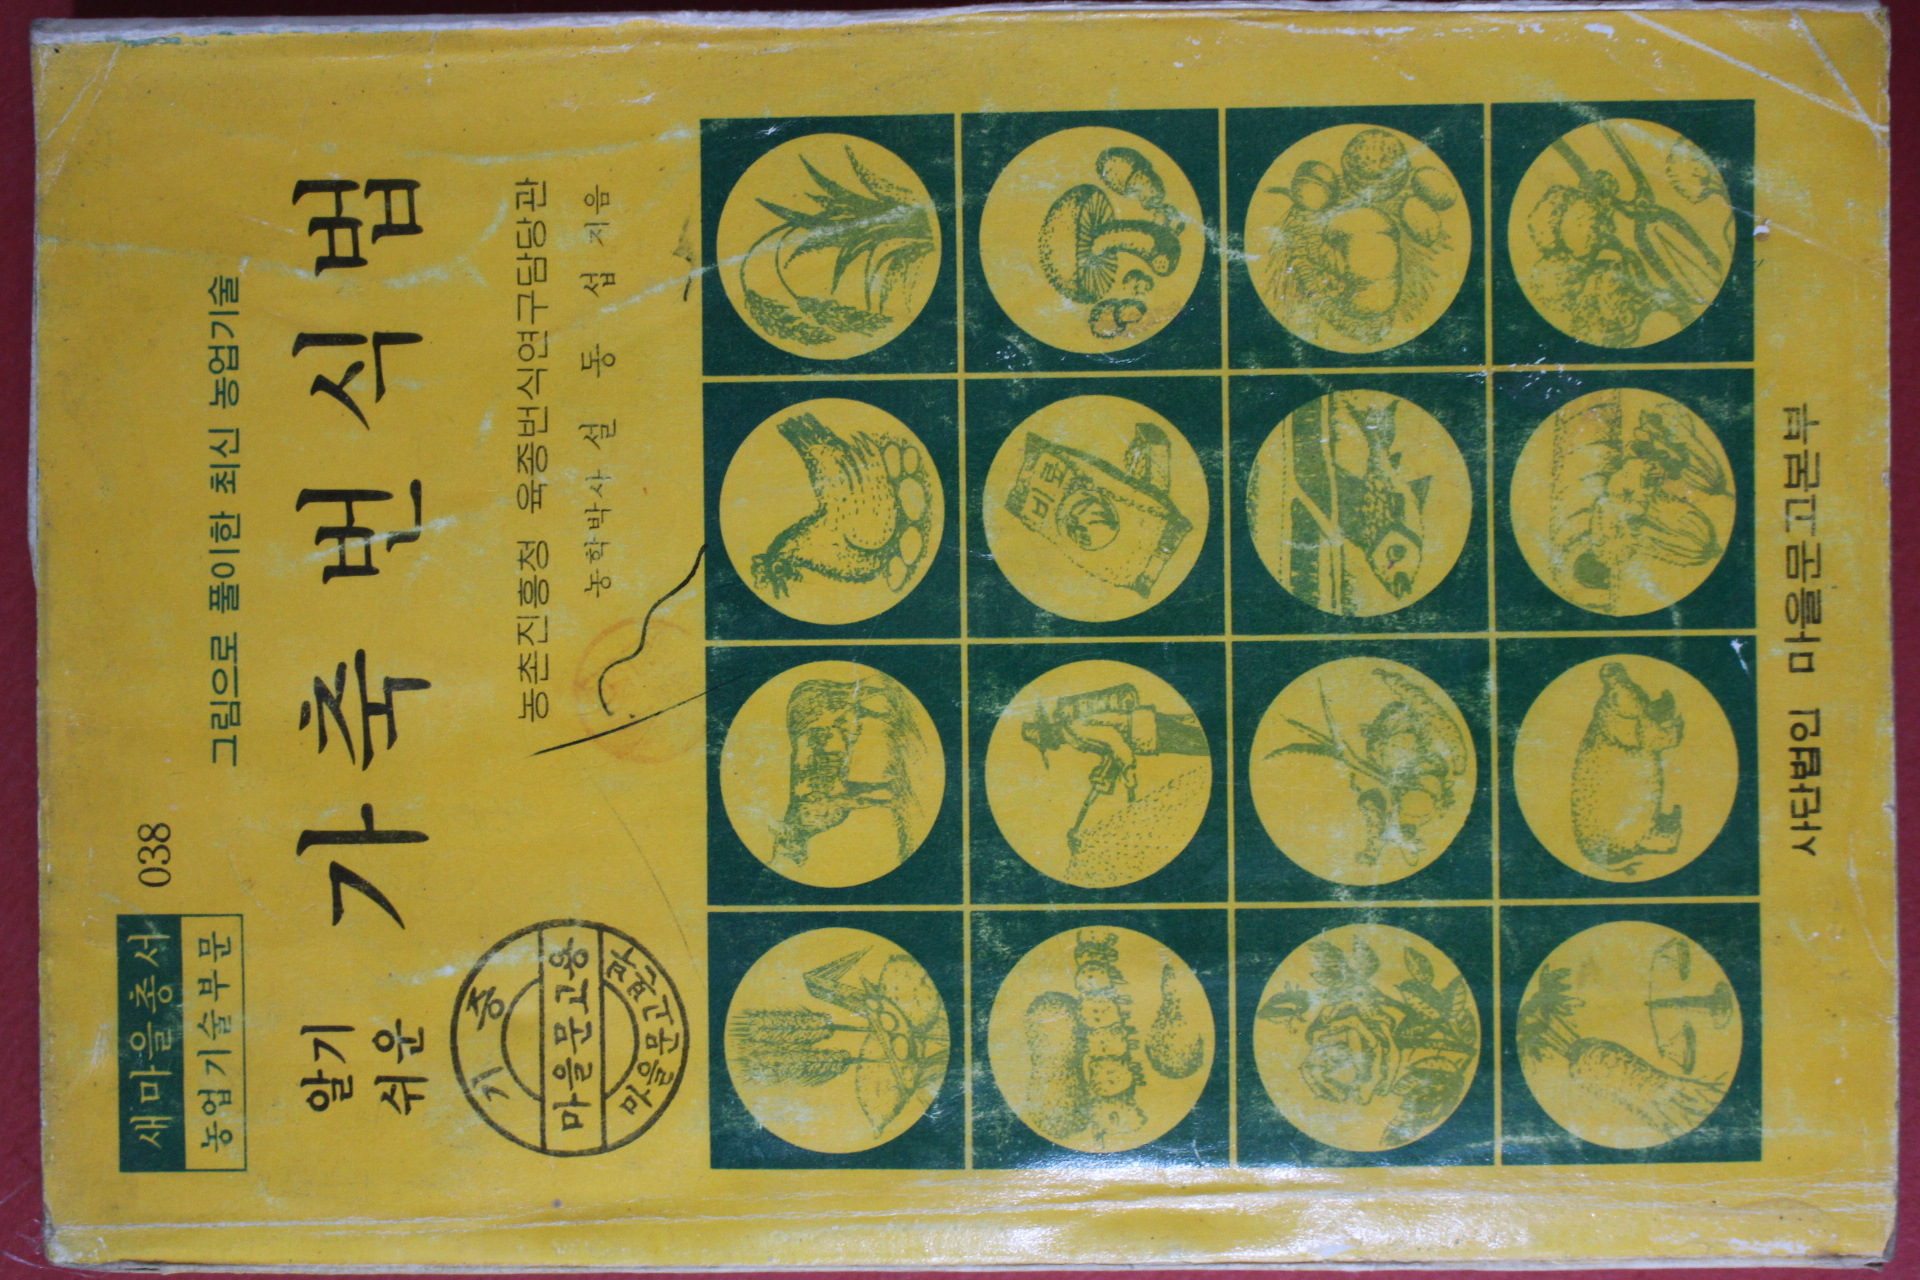 새마을총서
농업기술부문
038
그림으로 풀이한 최신 농업기술
알기
쉬운
가축번식법
농촌진흥청 육종번식연구담당관
농학박사 설동섭 지음
기증
마을문고용
마을문고본부
비료
사단법인 마을문고본부